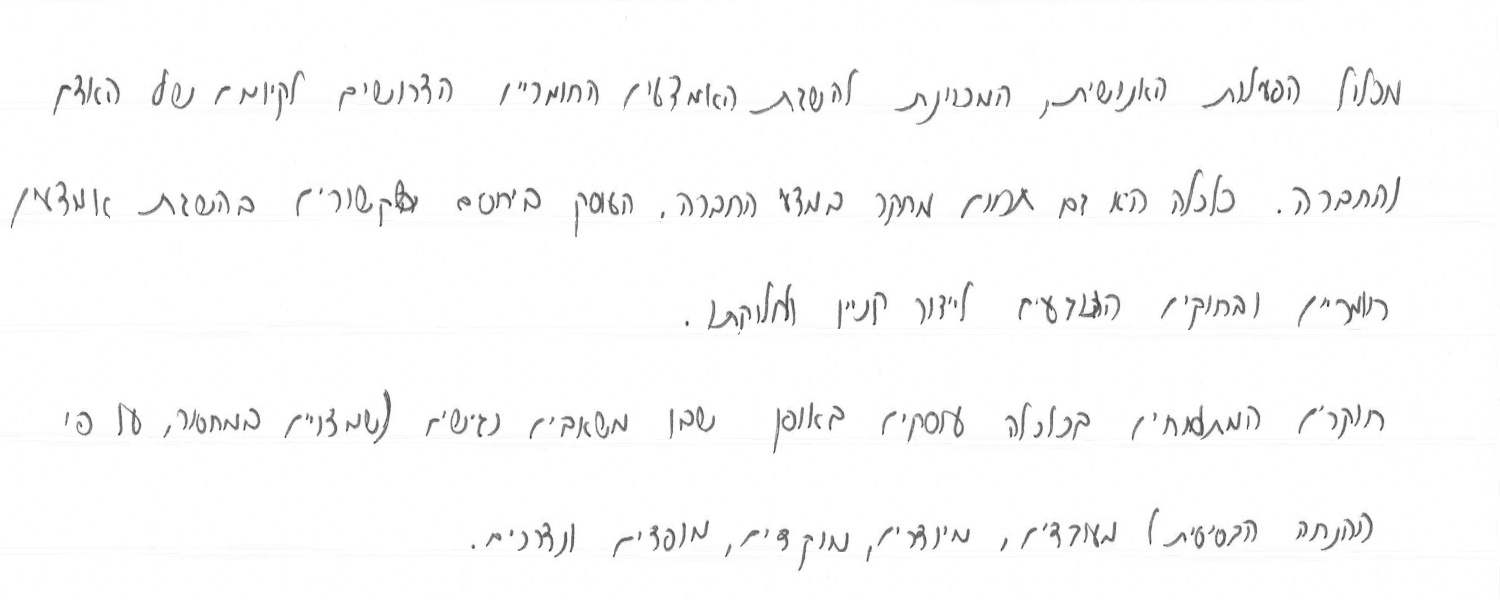 מכלול הפעילות האנושית, המכוונת להשגת האמצעים החומריים הדרושים לקיומם של האדם
והחברה. כלכלה היא גם תחום מחקר במדעי החברה, העוסק ביחסים שקשורים בהשגת אמצעים
חומריים ובחוקים הנוגעים לייצור קניין וחלוקתו.
חוקרים המתמחים בכלכלה עוסקים באופן שבו משאבים נגישים (שמצויים במחסור, על פי
ההנחה הבסיסית) מעובדים, מיוצרים, מוקצים, מופצים ונצרכים.